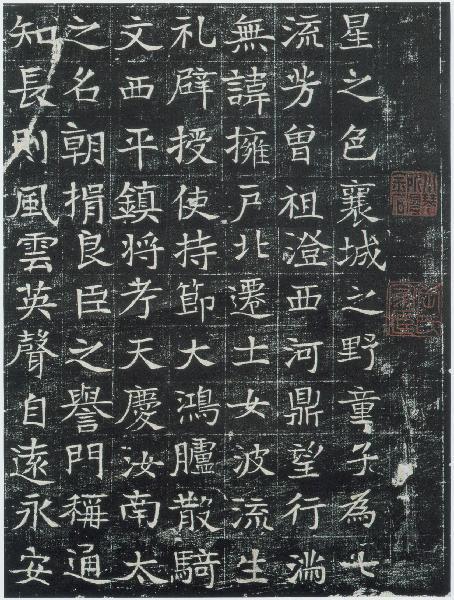 星之色襄城之野童子為七
流芳曾祖澄西河鼎望行滿
無諱擁戶北遷士女波流生
礼辟授使持節大鴻臚散騎
文西平鎮將考天慶汝南太
之名朝捐良臣之譽門稱通
知長則風雲英聲自遠永安